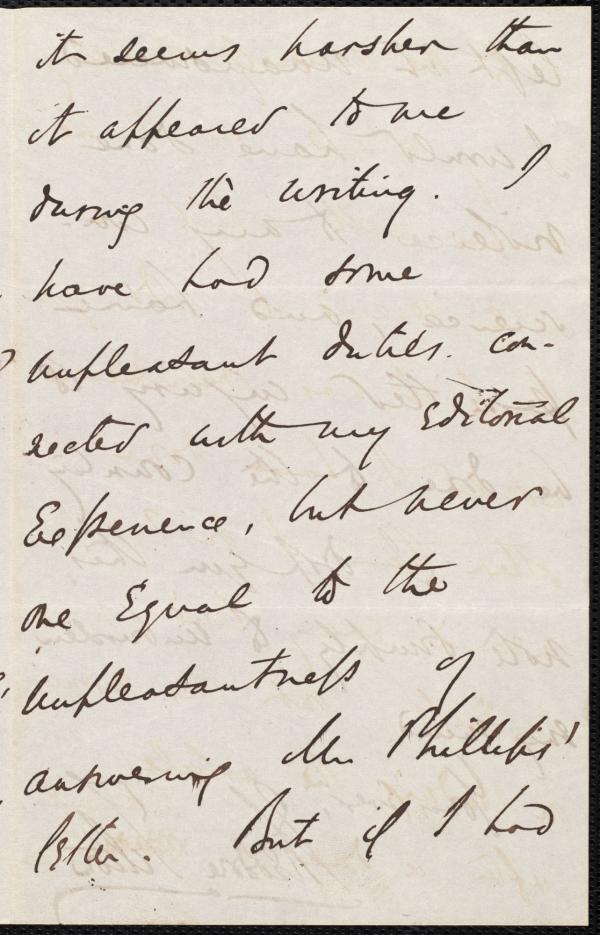 it seems harsher than
it appeared to me
during the writing. I
have had some
unpleasant duties. con-
nected with my Editorial
Experience, but never
one Equal to the
unpleasantness of
answering Mr Phillips'
letter. But if I had